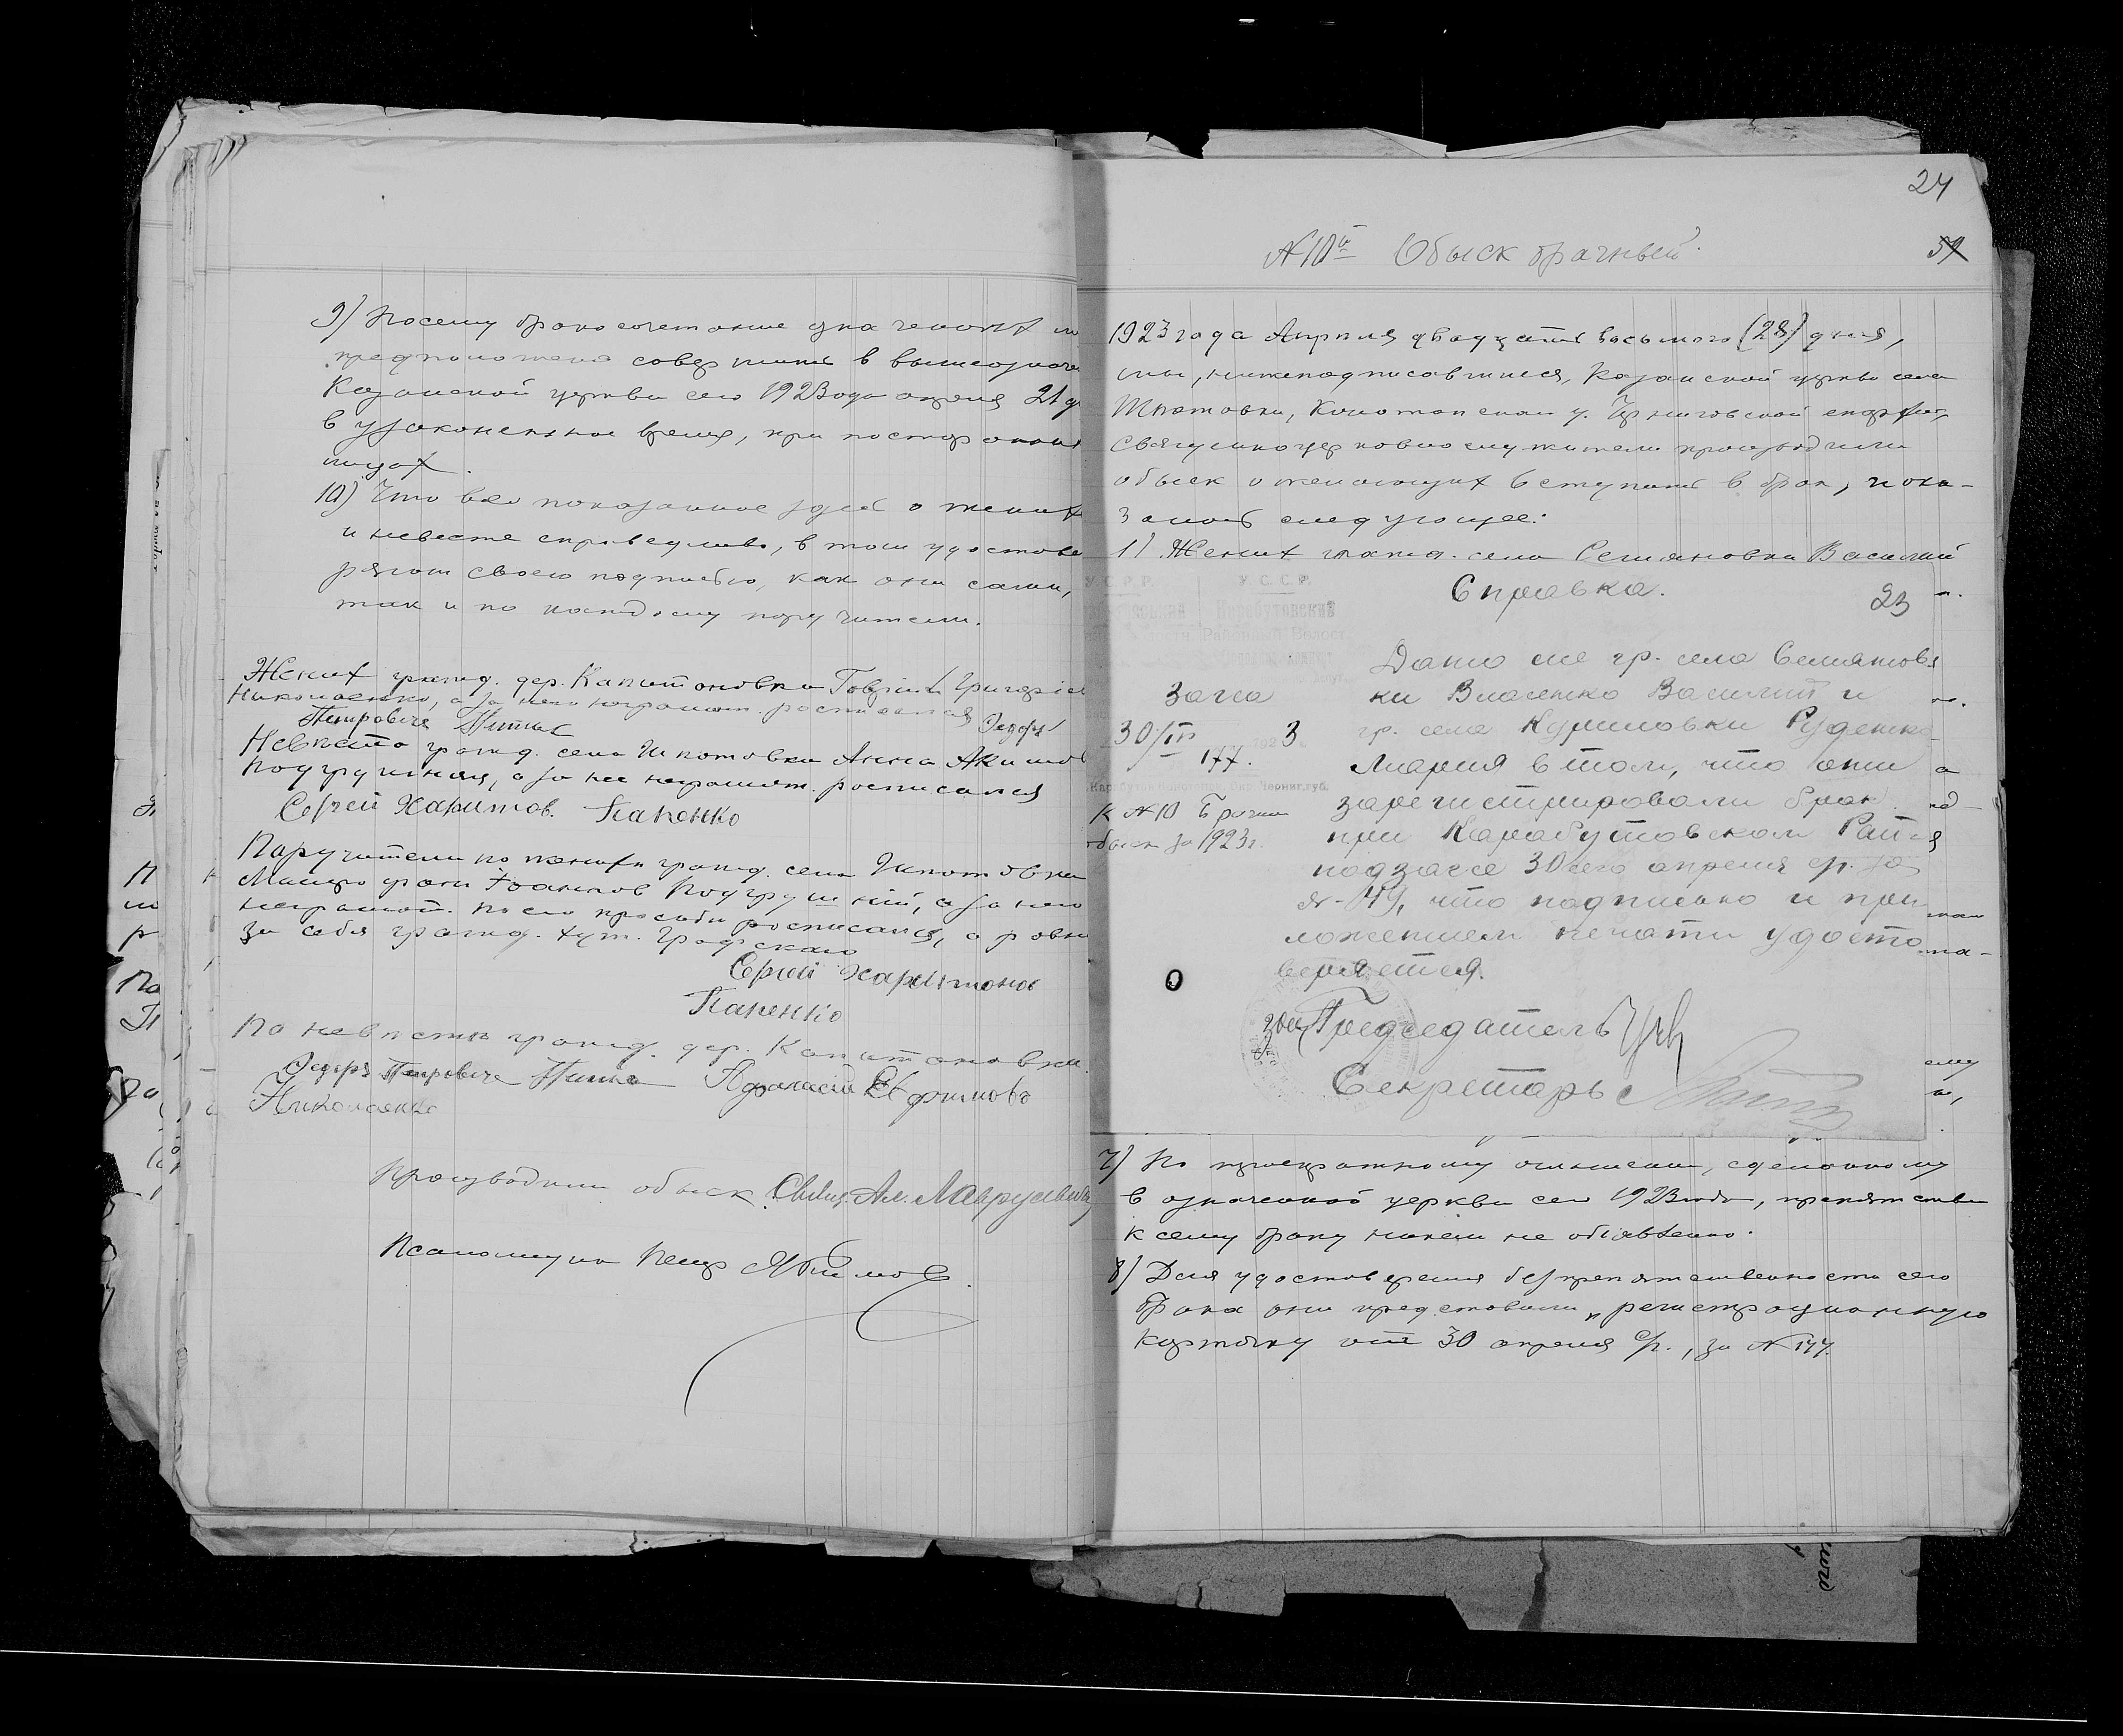 9) Посему бракосочетание означенных
предположено совершить в вышеозначен
Казанской церкви сего 1923 года апреля 21 д
в узаконенное время, при посторонних
лицах.
10) Что все показанное здесь о женихе
и невесте справедливо, в том удостове
ряют своею подписью, как они сами,
так и по каждому поручители.
Жених гражд. дер. Капитоновки Гавриил Григорьев
Николаенко, а за него неграмот. росписался Федоръ
Петровичъ
Невеста гражд. села Шпотовки Анна Акимов
Подгрушная, а за нее неграмот. росписался
Сергей Харитонов. Папенко
Поручители по женихе гражд. села Шпотовки
Иоаннов Подгрушный, а за него
неграмот. по его просьбе росписался, а ровно
за себя гражд. хут. Графскаго
Сергей Харитонов
Папенко
По невесте гражд. дер. Капитоновки
Федоръ Петровичъ Афанасий Ефимовъ
Николаенко
Производили обыск: Свящ. Ал. Лаврусевич
Псаломщик Петр
24
N 10й Обыск брачный.
1923 года Апреля двадцать восьмого (28) дня,
мы, нижеподписавшиеся, Казанской церкви села
Шпотовки, Конотопском у. Черниговской епархии,
священноцерковнослужители производили
обыск о желающих вступить в брак, и ока-
залось следующее:
1) Жених гражд. села Семяновки Василий
Справка.
23
У.С.Р.Р. У.С.С.Р.
Карабутовский
Районный Волост.
Загса
30/IV 1923
177.
К N 10 Брачн
обыск за 1923 г.
Дано сие гр. села Семянов
ки Власенко Василий и
гр. села Куриловки Руденко
Мария в том, что они
зарегистрировали брак
при Карабутовском Рай
подзагсе 30 сего апреля с/г. за
N- 49, что подписью и при
ложением печати удосто
веряется.
зам Председатель
Секретарь
7) По троекратному оглашению, сделанному
в означенной церкви сего 1923 года, препятствия
к сему браку никем не объявлено.
8) Для удостоверения безпрепятственности сего
брака они представили „регистрационную
карточку от 30 апреля с/г., за N 177.